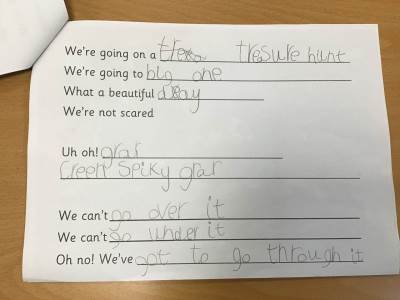 We're going on a tresure hunt
We're going to big one
What a beautiful day
We're not scared
Uh oh! grar
Creen Spiky grar
We can't go over it
We can't go under it
Oh no! We've got to go through it